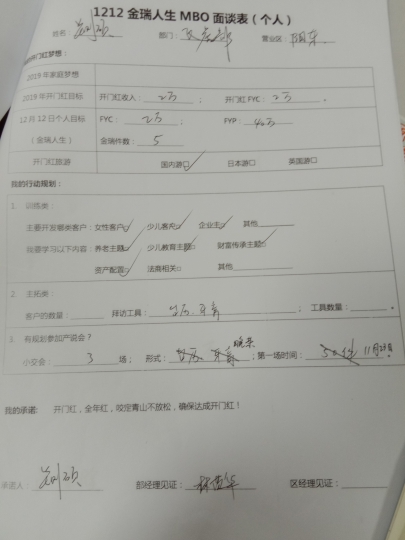 1212 金瑞人生 MBO 面谈表（个人）
姓名： 部门： 营业区：
开门红梦想：
2019 年家庭梦想
2019 年开门红目标 开门红收入：2万； 开门红 FYC：2万。
12 月 12 日个人目标 FYC：2万； FYP：40万
（金瑞人生） 金瑞件数：5
开门红旅游 国内游□✓ 日本游□ 美国游□
我的行动规划：
1 训练类：
主要开发哪类客户：女性客户□✓ 少儿客户□✓ 企业主□✓ 其他
我要学习以下内容：养老主题□✓ 少儿教育主题□✓ 财富传承主题□✓
资产配置□✓ 法商相关□ 其他
2. 主拓类：
客户的数量： 拜访工具：台历 ； 工具数量： 。
3. 有规划参加产说会？
小交会：3 场； 形式：台历 ；第一场时间： 11月
我的承诺： 开门红，全年红，咬定青山不放松，确保达成开门红！
承诺人 部经理见证： 区经理见证：